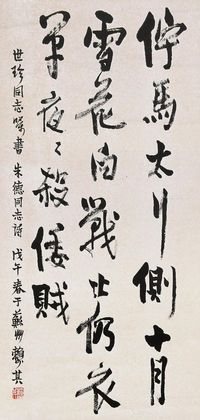 佇馬太行側十月
雪花白戰士仍衣
單夜〻殺倭賊
世珍同志 書 朱德同志詩 戊午春于蘇州